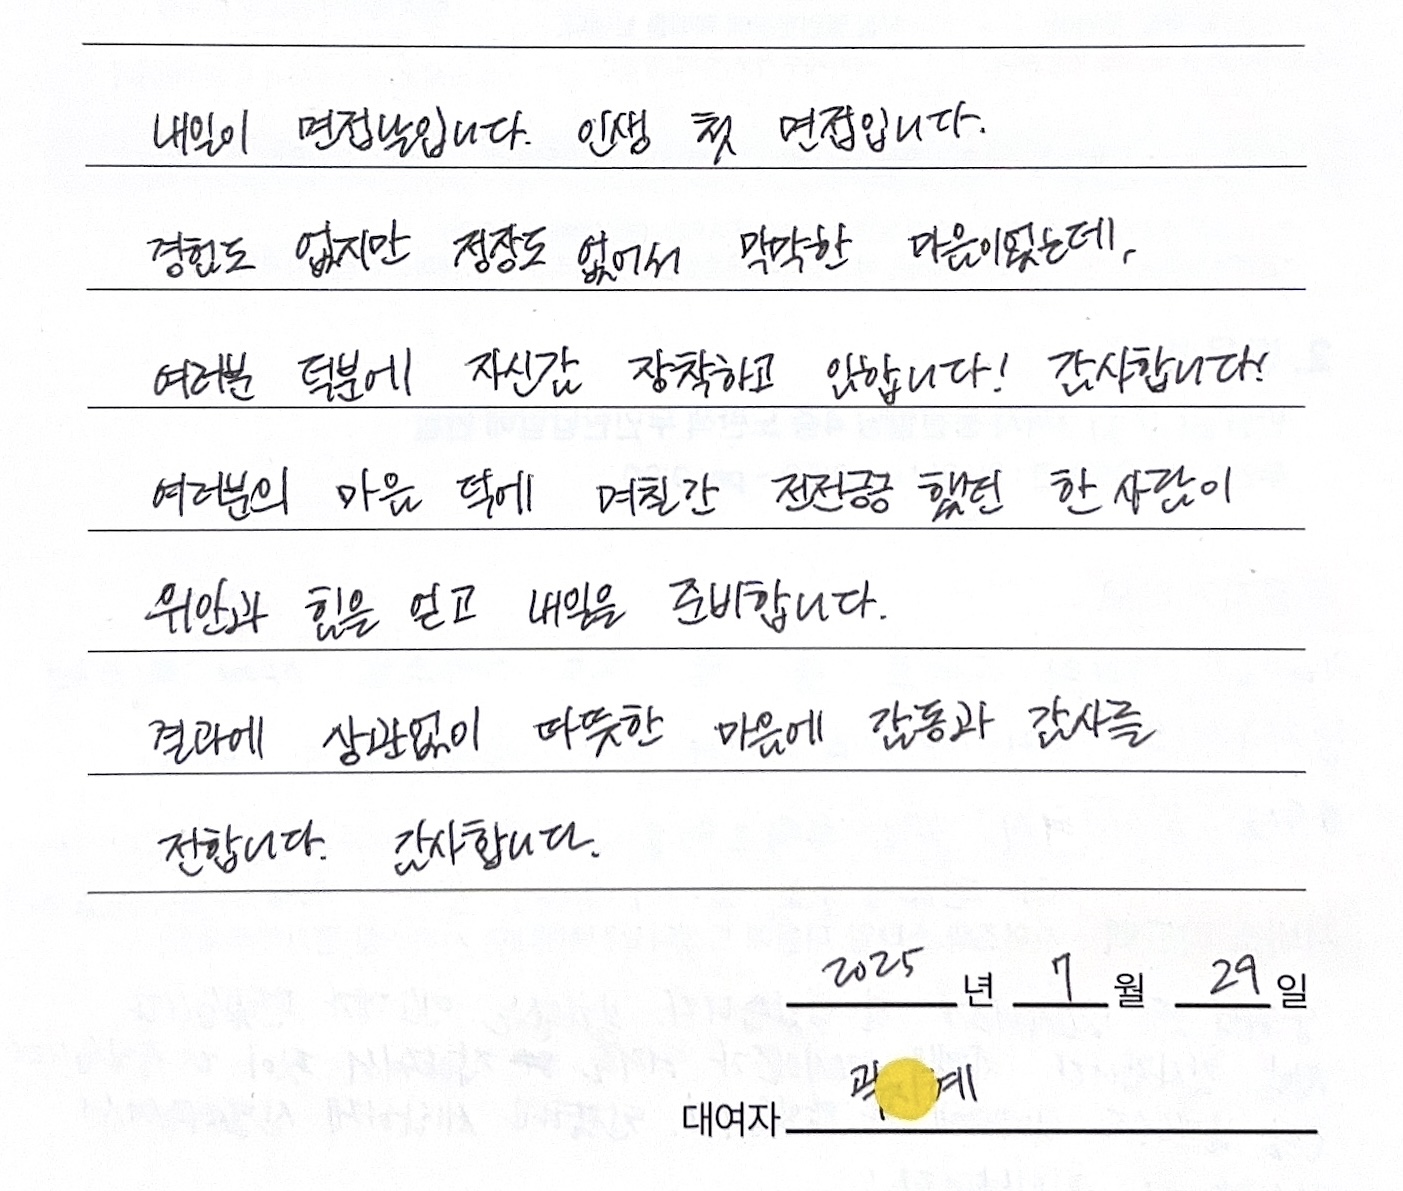 내일이 면접날입니다. 인생 첫 면접입니다.
경험도 없지만 정장도 없어서 막막한 마음이었는데,
여러분 덕분에 자신감 장착하고 임합니다! 감사합니다!
여러분의 마음 덕에 며칠간 전전긍긍 했던 한 사람이
위안과 힘을 얻고 내일을 준비합니다.
결과에 상관없이 따뜻한 마음에 감동과 감사를
전합니다. 감사합니다.
2025 년 7 월 29 일
대여자 곽 계